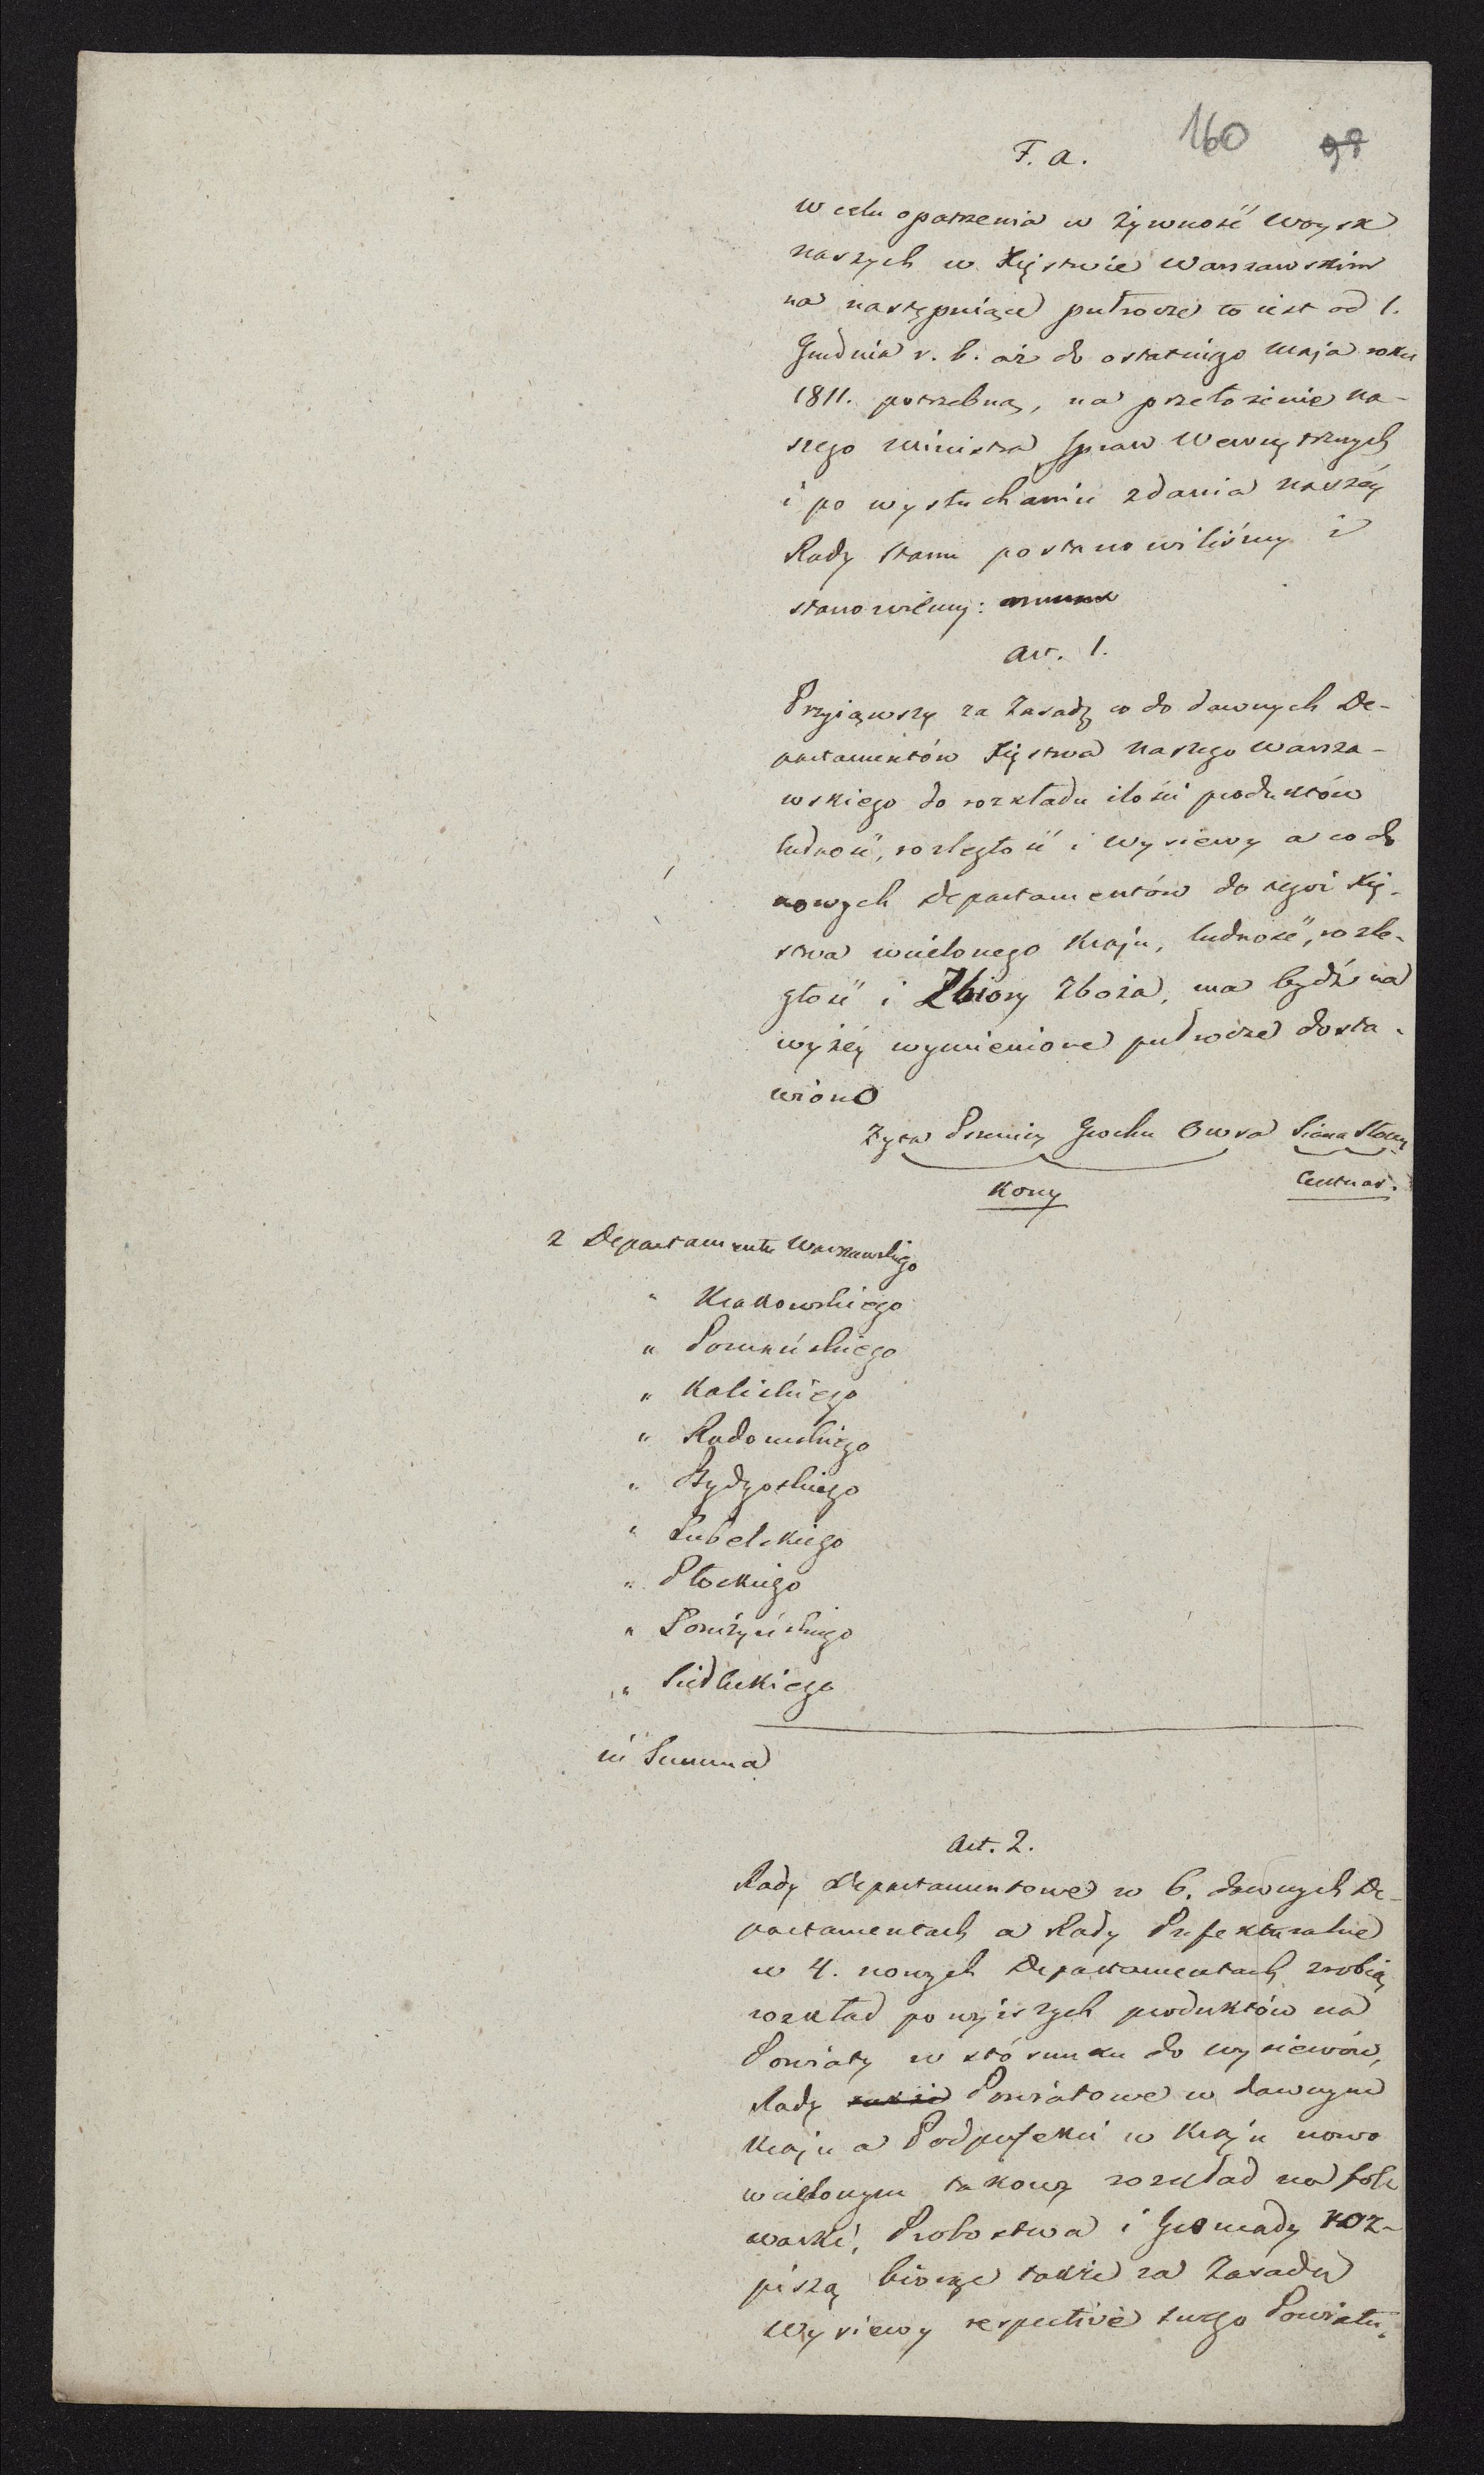 160 98
F. A.
W celu opatrzenia w żywność Woysk
naszych w Xięstwie Warszawskim
na następuiące pułrocze to iest od 1.
Grudnia r. b. aż do ostatniego Maja roku
1811. potrzebną, na przełożenie na-
szego Ministra Spraw Wewnętrznych
i po wysłuchaniu zdania naszey
Rady Stanu postanowiliśmy i
stanowiemy:
Art. 1.
Przyiąwszy za Zasadę co do dawnych De-
partamentów Xięstwa naszego Warsza-
wskiego do rozkładu ilości produktów
ludność, rozległość i wysiewy a co do
nowych Departamentów do tegoż Xię-
stwa wcielonego Kraju, ludność, rozle-
głość i Zbiory Zboża, ma bydź na
wyżéy wymienione pułrocze dosta-
wiono
Żyta Pszenicy Grochu Owsa Siana Słomy
Korcy Centnar.
z Departamentu Warszawskiego
" Krakowskiego
" Poznańskiego
" Kaliskiego
" Radomskiego
" Bydgoskiego
" Lubelskiego
" Płockiego
" Łomżyńskiego
" Siedleckiego
in Summa
Art. 2.
Rady Departamentowe w 6. dawnych De-
partamentach a Rady Prefekturalne
w 4. nowych Departamentach zrobią
rozkład powyższych produktów na
Powiaty w stósunku do wysiewów,
Rady także Powiatowe w dawnym
Kraju a Podprefekci w Kraju nowo
wcielonym takowy rozkład na fol-
warki, Probostwa i Gromady roz-
piszą biorąc także za Zasadę
Wysiewy respective swego Powiatu.